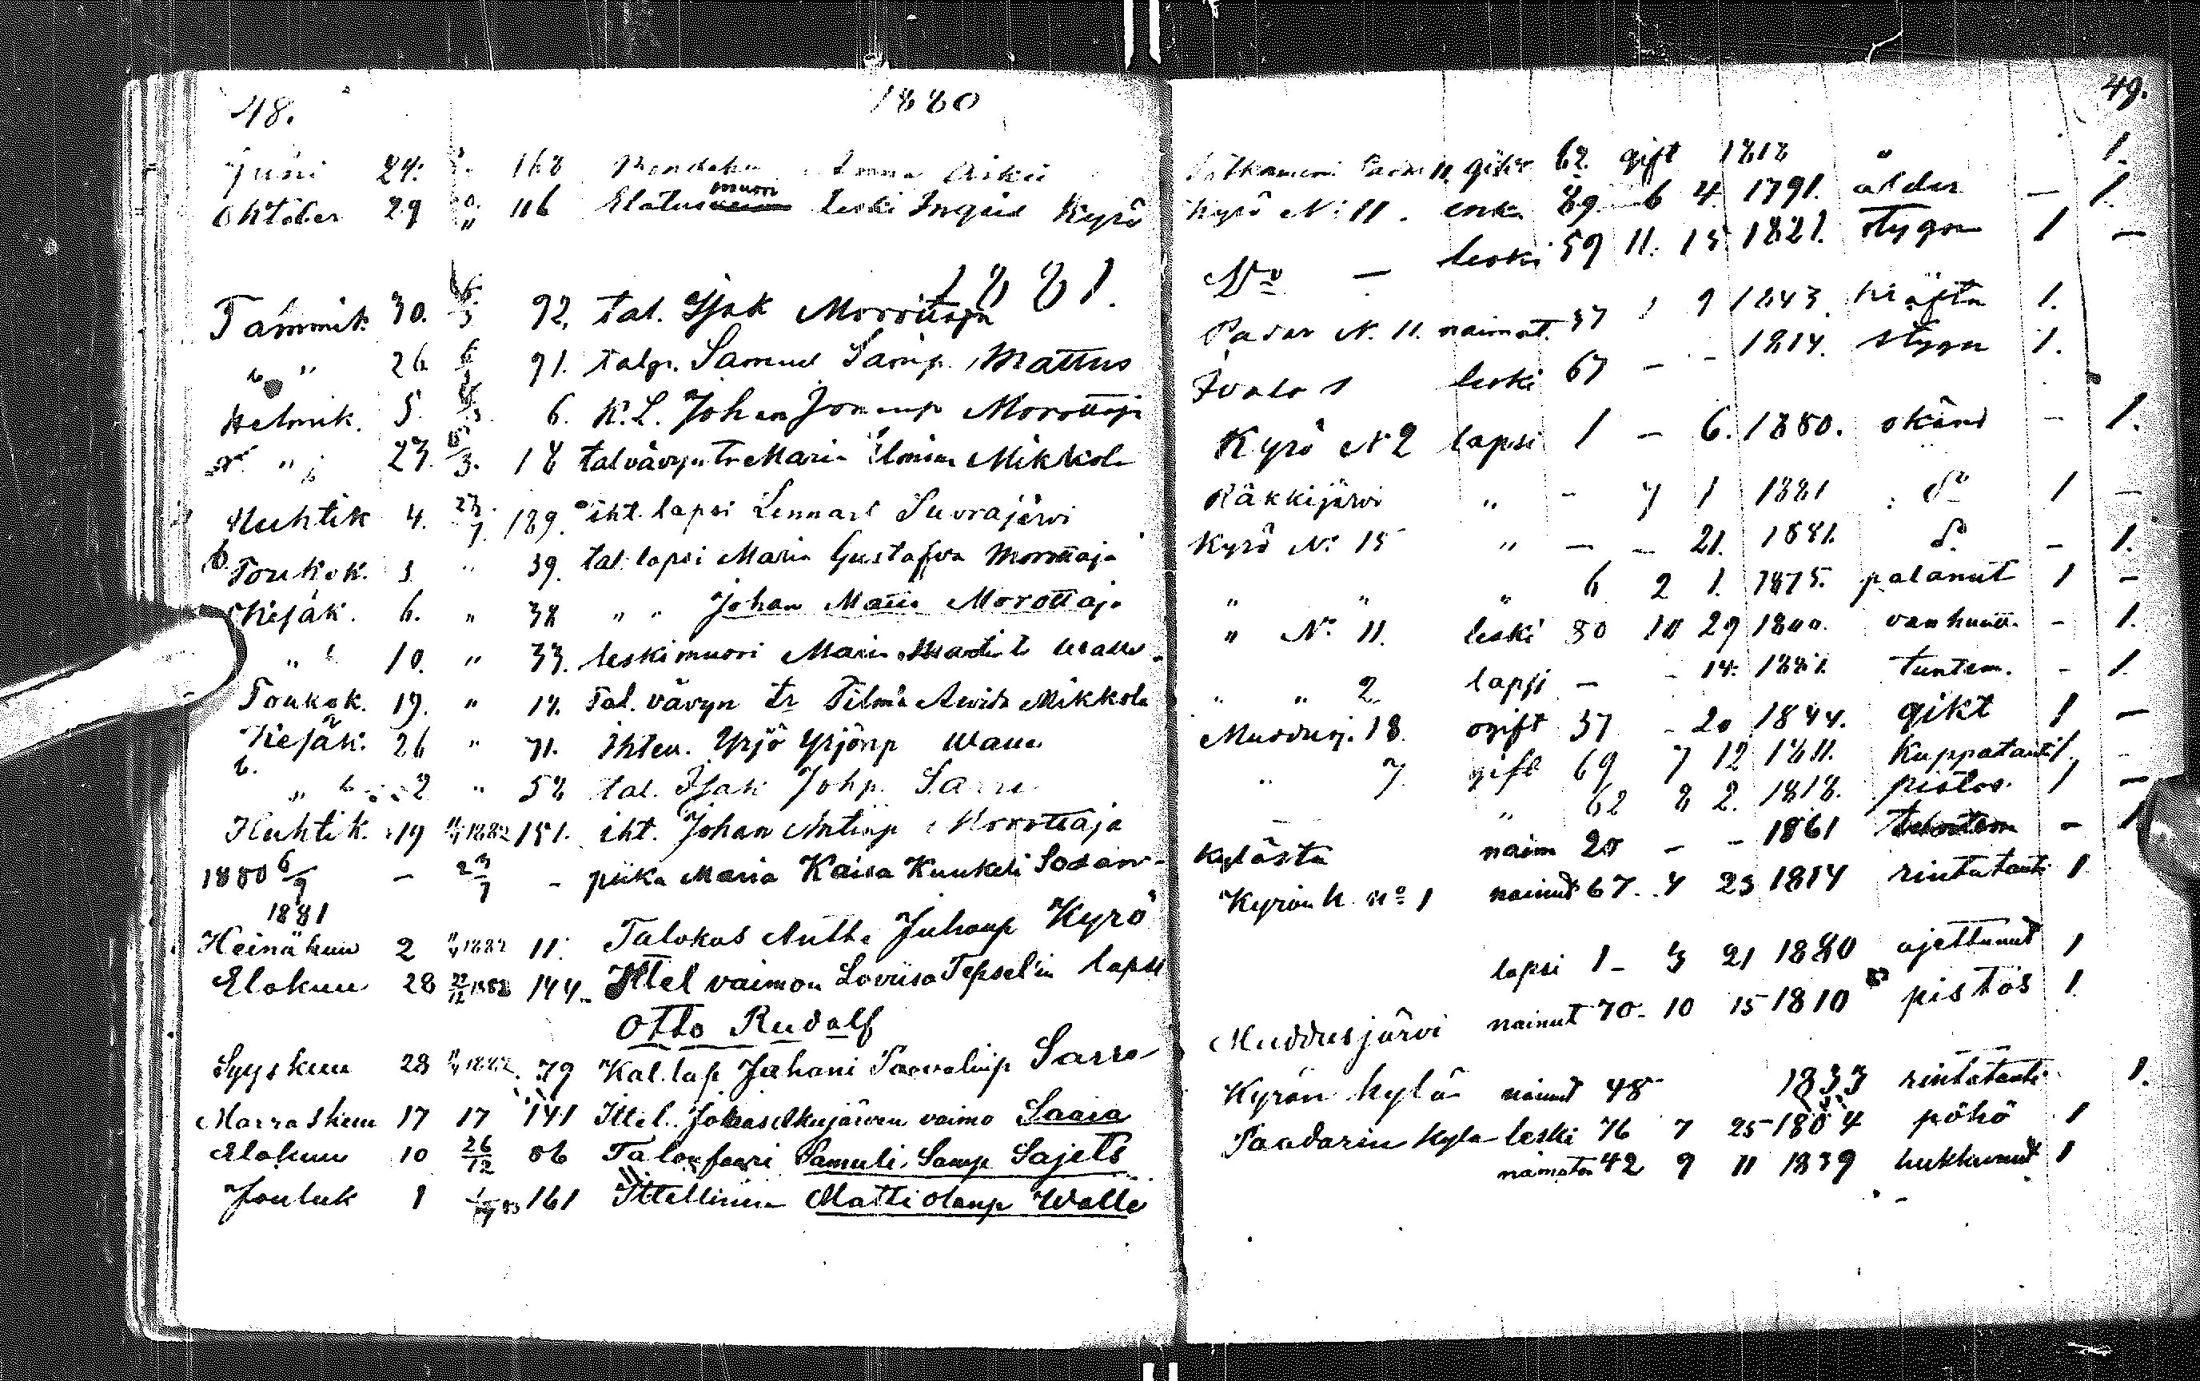 48. 1880
Juni 24. 168
Oktober 29 116 Elatus muori leski Ingrid Kyrö
1881.
Tammik. 30. 92. tal. Isak Morottaja
" " 26. 91. talp. Samuel Samp. Mattus
Helmik. 5. 6. K.L. Johan Morottaja
" " 23. 18 talvävyn tr Maria Mikkola
Huhtik 4. 189. iht. lapsi Lennart Suvrajärvi
Toukok. 3 " 39. tal. lapsi Maria Gustafva Morottaja
Kesäk. 6. " 38 " " Johan Matts Morottaja
" " 10. " 33. leskimuori Maria
Toukok. 19. " 14. Tal. vävyn tr Mikkola
Kesäk. 26 " 71. ihtell. Yrjö Yrjönp Walle
" 2 " 58 tal. Isak Johp. Sarre
Huhtik. 19 1882 151. iht. Johan Antinp Morottaja
1880 6/9 - - piika Maria Kaisa Kuukeli
1881
Heinäkuu 2 1882 11. Talokas Antti Juhanp Kyrö
Elokuu 28 1882 144. Ittel vaimon Loviisa Tepsel'in lapsi
Otto Rudolf
Syyskuu 28 1882. 79 Kal. lap Juhani Paavalinp Sarre
Marraskuu 17 17 141 Ittel. vaimo Saara
Elokuu 10 26/12 86 Talon faari Samuli Samp Sajets
Jouluk 1 161 Ittellinen Matti Olanp Walle
49.
62 gift 1818 " 1.
Kyrö No 11. enka 89. 6 4. 1791. ålder — 1.
No — leski 59 11. 15. 1821. stygn 1 —
Padar N. 11. naimat. 37 1 9 1843. kräfta 1.
Ivalo 1 leski 67 - - 1814. stygn 1.
Kyrö N 2 lapsi 1 — 6. 1880. okänd — 1.
Räkkijärvi " - 7 1 1881 do 1 —
Kyrö No 15 " — — 21. 1881. do — 1.
" " " 6 2 1. 1875. palanut 1 —
" No 11. leski 80 10 29 1800. vanhuutt. — 1.
" " 2 lapsi — - 14. 1881. tuntem. - 1.
Muddusj. 18. ogift 37 - 20 1844. gikt 1 —
" 7. gift 69 7 12 1811. Kuppatauti 1. -
— " 62 8 2. 1818. pistos. 1 —
Kylästa naim 20 — - 1861 — 1
Kyrön k. No 1 nainut 67. 4 23 1814 rintatauti 1
lapsi 1 - 3 21 1880 ajettunut 1
Muddusjärvi nainut 70 - 10 15 1810 pistos 1.
Kyrön kylä nainut 48 1833 rintatauti 1.
Paadarin kyla leski 76 7 25 1804 pöhö 1
naimaton 42 9 11 1839 hukkunut 1